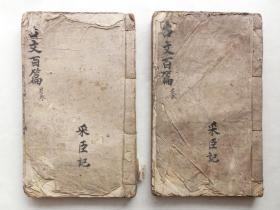 古文百篇
采臣記
古文百篇
采臣記